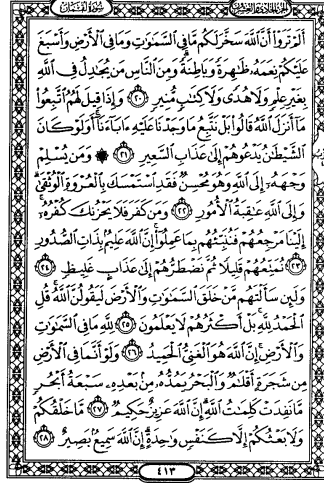 الجزء الحادي والعشرون سورة لقمان
أَلَمْ تَرَوْا۟ أَنَّ ٱللَّهَ سَخَّرَ لَكُم مَّا فِى ٱلسَّمَٰوَٰتِ وَمَا فِى ٱلْأَرْضِ وَأَسْبَغَ
عَلَيْكُمْ نِعَمَهُۥ ظَٰهِرَةً وَبَاطِنَةً ۗ وَمِنَ ٱلنَّاسِ مَن يُجَٰدِلُ فِى ٱللَّهِ
بِغَيْرِ عِلْمٍ وَلَا هُدًى وَلَا كِتَٰبٍ مُّنِيرٍ ٢٠ وَإِذَا قِيلَ لَهُمُ ٱتَّبِعُوا۟
مَآ أَنزَلَ ٱللَّهُ قَالُوا۟ بَلْ نَتَّبِعُ مَا وَجَدْنَا عَلَيْهِ ءَابَآءَنَآ ۚ أَوَلَوْ كَانَ
ٱلشَّيْطَٰنُ يَدْعُوهُمْ إِلَىٰ عَذَابِ ٱلسَّعِيرِ ٢١ ۞ وَمَن يُسْلِمْ
وَجْهَهُۥٓ إِلَى ٱللَّهِ وَهُوَ مُحْسِنٌ فَقَدِ ٱسْتَمْسَكَ بِٱلْعُرْوَةِ ٱلْوُثْقَىٰ ۗ
وَإِلَى ٱللَّهِ عَٰقِبَةُ ٱلْأُمُورِ ٢٢ وَمَن كَفَرَ فَلَا يَحْزُنكَ كُفْرُهُۥٓ ۚ
إِلَيْنَا مَرْجِعُهُمْ فَنُنَبِّئُهُم بِمَا عَمِلُوٓا۟ ۚ إِنَّ ٱللَّهَ عَلِيمٌۢ بِذَاتِ ٱلصُّدُورِ
٢٣ نُمَتِّعُهُمْ قَلِيلًا ثُمَّ نَضْطَرُّهُمْ إِلَىٰ عَذَابٍ غَلِيظٍ ٢٤
وَلَئِن سَأَلْتَهُم مَّنْ خَلَقَ ٱلسَّمَٰوَٰتِ وَٱلْأَرْضَ لَيَقُولُنَّ ٱللَّهُ ۚ قُلِ
ٱلْحَمْدُ لِلَّهِ ۚ بَلْ أَكْثَرُهُمْ لَا يَعْلَمُونَ ٢٥ لِلَّهِ مَا فِى ٱلسَّمَٰوَٰتِ
وَٱلْأَرْضِ ۚ إِنَّ ٱللَّهَ هُوَ ٱلْغَنِىُّ ٱلْحَمِيدُ ٢٦ وَلَوْ أَنَّمَا فِى ٱلْأَرْضِ
مِن شَجَرَةٍ أَقْلَٰمٌ وَٱلْبَحْرُ يَمُدُّهُۥ مِنۢ بَعْدِهِۦ سَبْعَةُ أَبْحُرٍ
مَّا نَفِدَتْ كَلِمَٰتُ ٱللَّهِ ۗ إِنَّ ٱللَّهَ عَزِيزٌ حَكِيمٌ ٢٧ مَّا خَلْقُكُمْ
وَلَا بَعْثُكُمْ إِلَّا كَنَفْسٍ وَٰحِدَةٍ ۗ إِنَّ ٱللَّهَ سَمِيعٌۢ بَصِيرٌ ٢٨
٤١٣